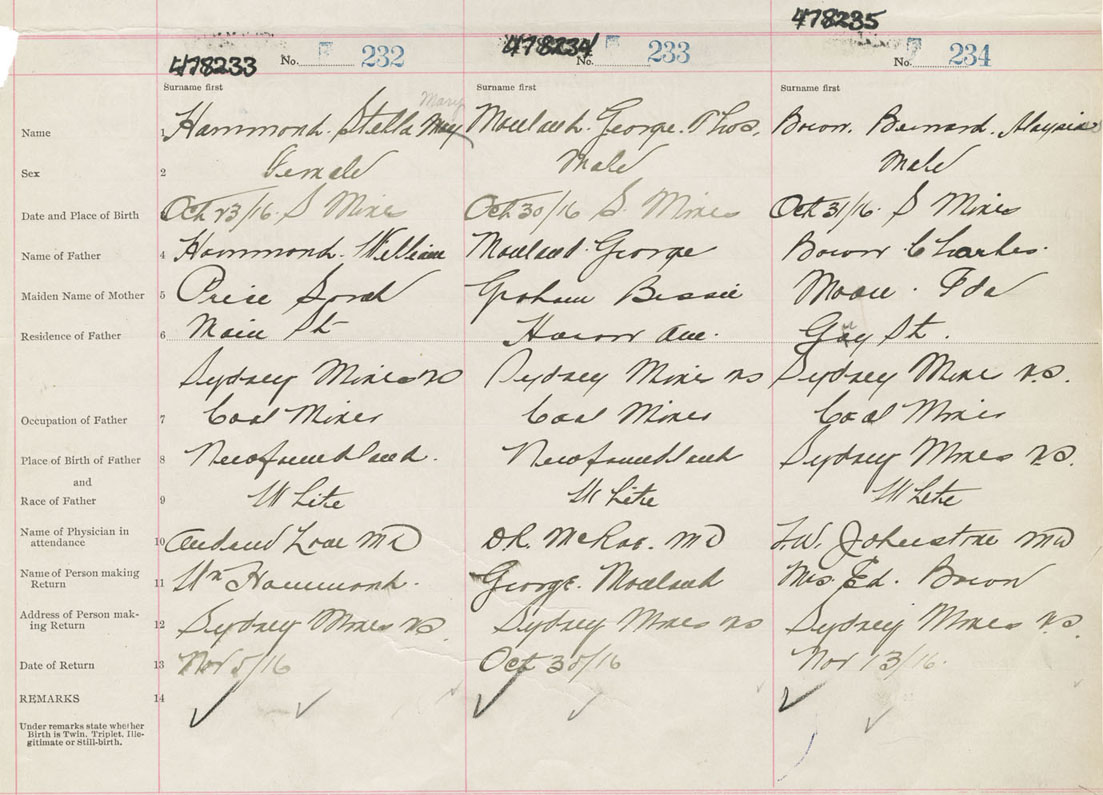 478233 478234 478235
No. 232 No. 233 No. 234
Surname first Surname first Surname first
Mary
Name 1 Hammond. Stella May George. Thos. Bernard.
Sex 2 Female Male Male
Date and Place of Birth Oct 23/16. S Mines Oct 30/16 S. Mines Oct 31/16. S Mines
Name of Father 4 Hammond. William George Charles.
Maiden Name of Mother 5 Sarah Graham Bessie Ida
Residence of Father 6 Main St Ave. St.
Sydney Mines NS Sydney Mines NS Sydney Mines N.S.
Occupation of Father 7 Coal Miner Coal Miner Coal Miner
Place of Birth of Father 8 Newfoundland. Newfoundland Sydney Mines N.S.
and
Race of Father 9 White White White
Name of Physician in
attendance 10 MD DR. McRae. MD J.W. Johnstone MD
Name of Person making
Return 11 Wm Hammond. George. Mrs Ed.
Address of Person mak-
ing Return 12 Sydney Mines NS. Sydney Mines NS Sydney Mines N.S.
Date of Return 13 Nov 5/16 Oct 30/16 Nov 13/16.
REMARKS 14
Under remarks state whether
Birth is Twin, Triplet, Ille-
gitimate or Still-birth.